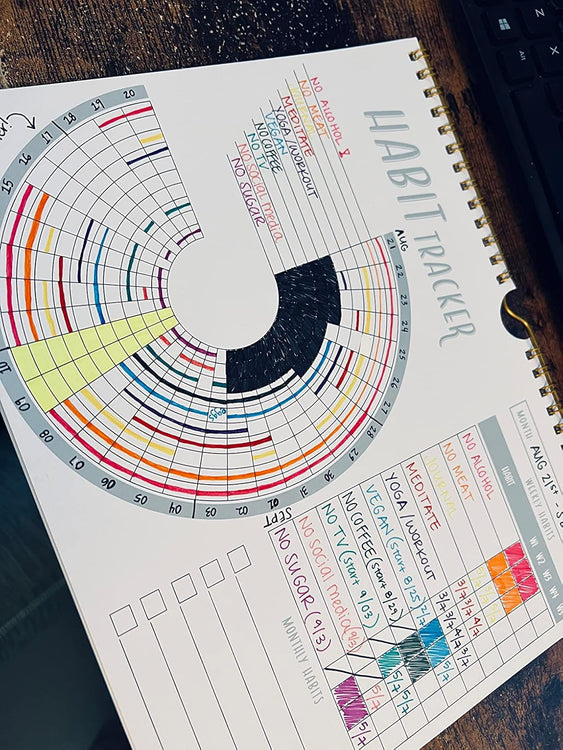 HABIT TRACKER
NO ALCOHOL
NO MEAT
JOURNAL
MEDITATE
YOGA/WORKOUT
VEGAN
NO COFFEE
NO TV
NO SOCIAL media
NO SUGAR
AUG
21
22
23
24
25
26
27
28
29
30
31
SEPT
01
02
03
04
05
06
07
08
09
10
15
16
17
18
19
20
MONTH: AUG 21st -
WEEKLY HABITS
HABIT W1 W2 W3 W4
NO ALCOHOL
NO MEAT
JOURNAL
MEDITATE 3/7 3/7 4/7
YOGA/WORKOUT 3/7 3/7 4/7 3/7
VEGAN (start 8/25) 2/7 5/7
NO COFFEE (start 8/29) 5/7
NO TV (start 9/03) 5/7 5/7
NO SOCIAL MEDIA (9/3) 5/7
NO SUGAR (9/3) 5/7
MONTHLY HABITS
Alt
Z
X